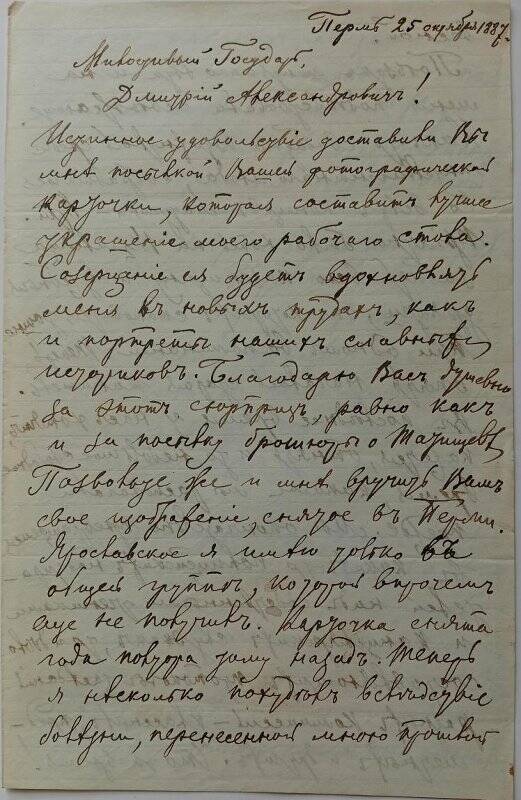 Пермь 25 октября 1887 г.
Милостивый Государь,
Дмитрій Александровичъ!
Истинное удовольствіе доставили Вы
мнѣ посылкой Вашей фотографической
карточки, которая составитъ лучшее
украшеніе моего рабочаго стола.
Созерцаніе ея будетъ вдохновлять
меня въ новыхъ трудахъ, какъ
и портреты нашихъ славныхъ
историковъ. Благодарю Васъ душевно
за этотъ сюрпризъ, равно какъ
и за посылку брошюры о Татищевѣ.
Позвольте же и мнѣ вручить Вамъ
свое изображеніе, снятое въ Перми.
Ярославское я имѣю только въ
общей группѣ, которой впрочемъ
еще не получилъ. Карточка снята
года полтора тому назадъ. Теперь
я нѣсколько похудѣлъ вслѣдствіе
болѣзни, перенесенной мною прошлой